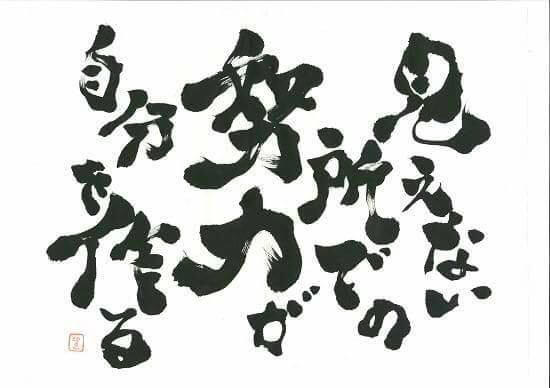 見えない
所での
努力が
自分を作る